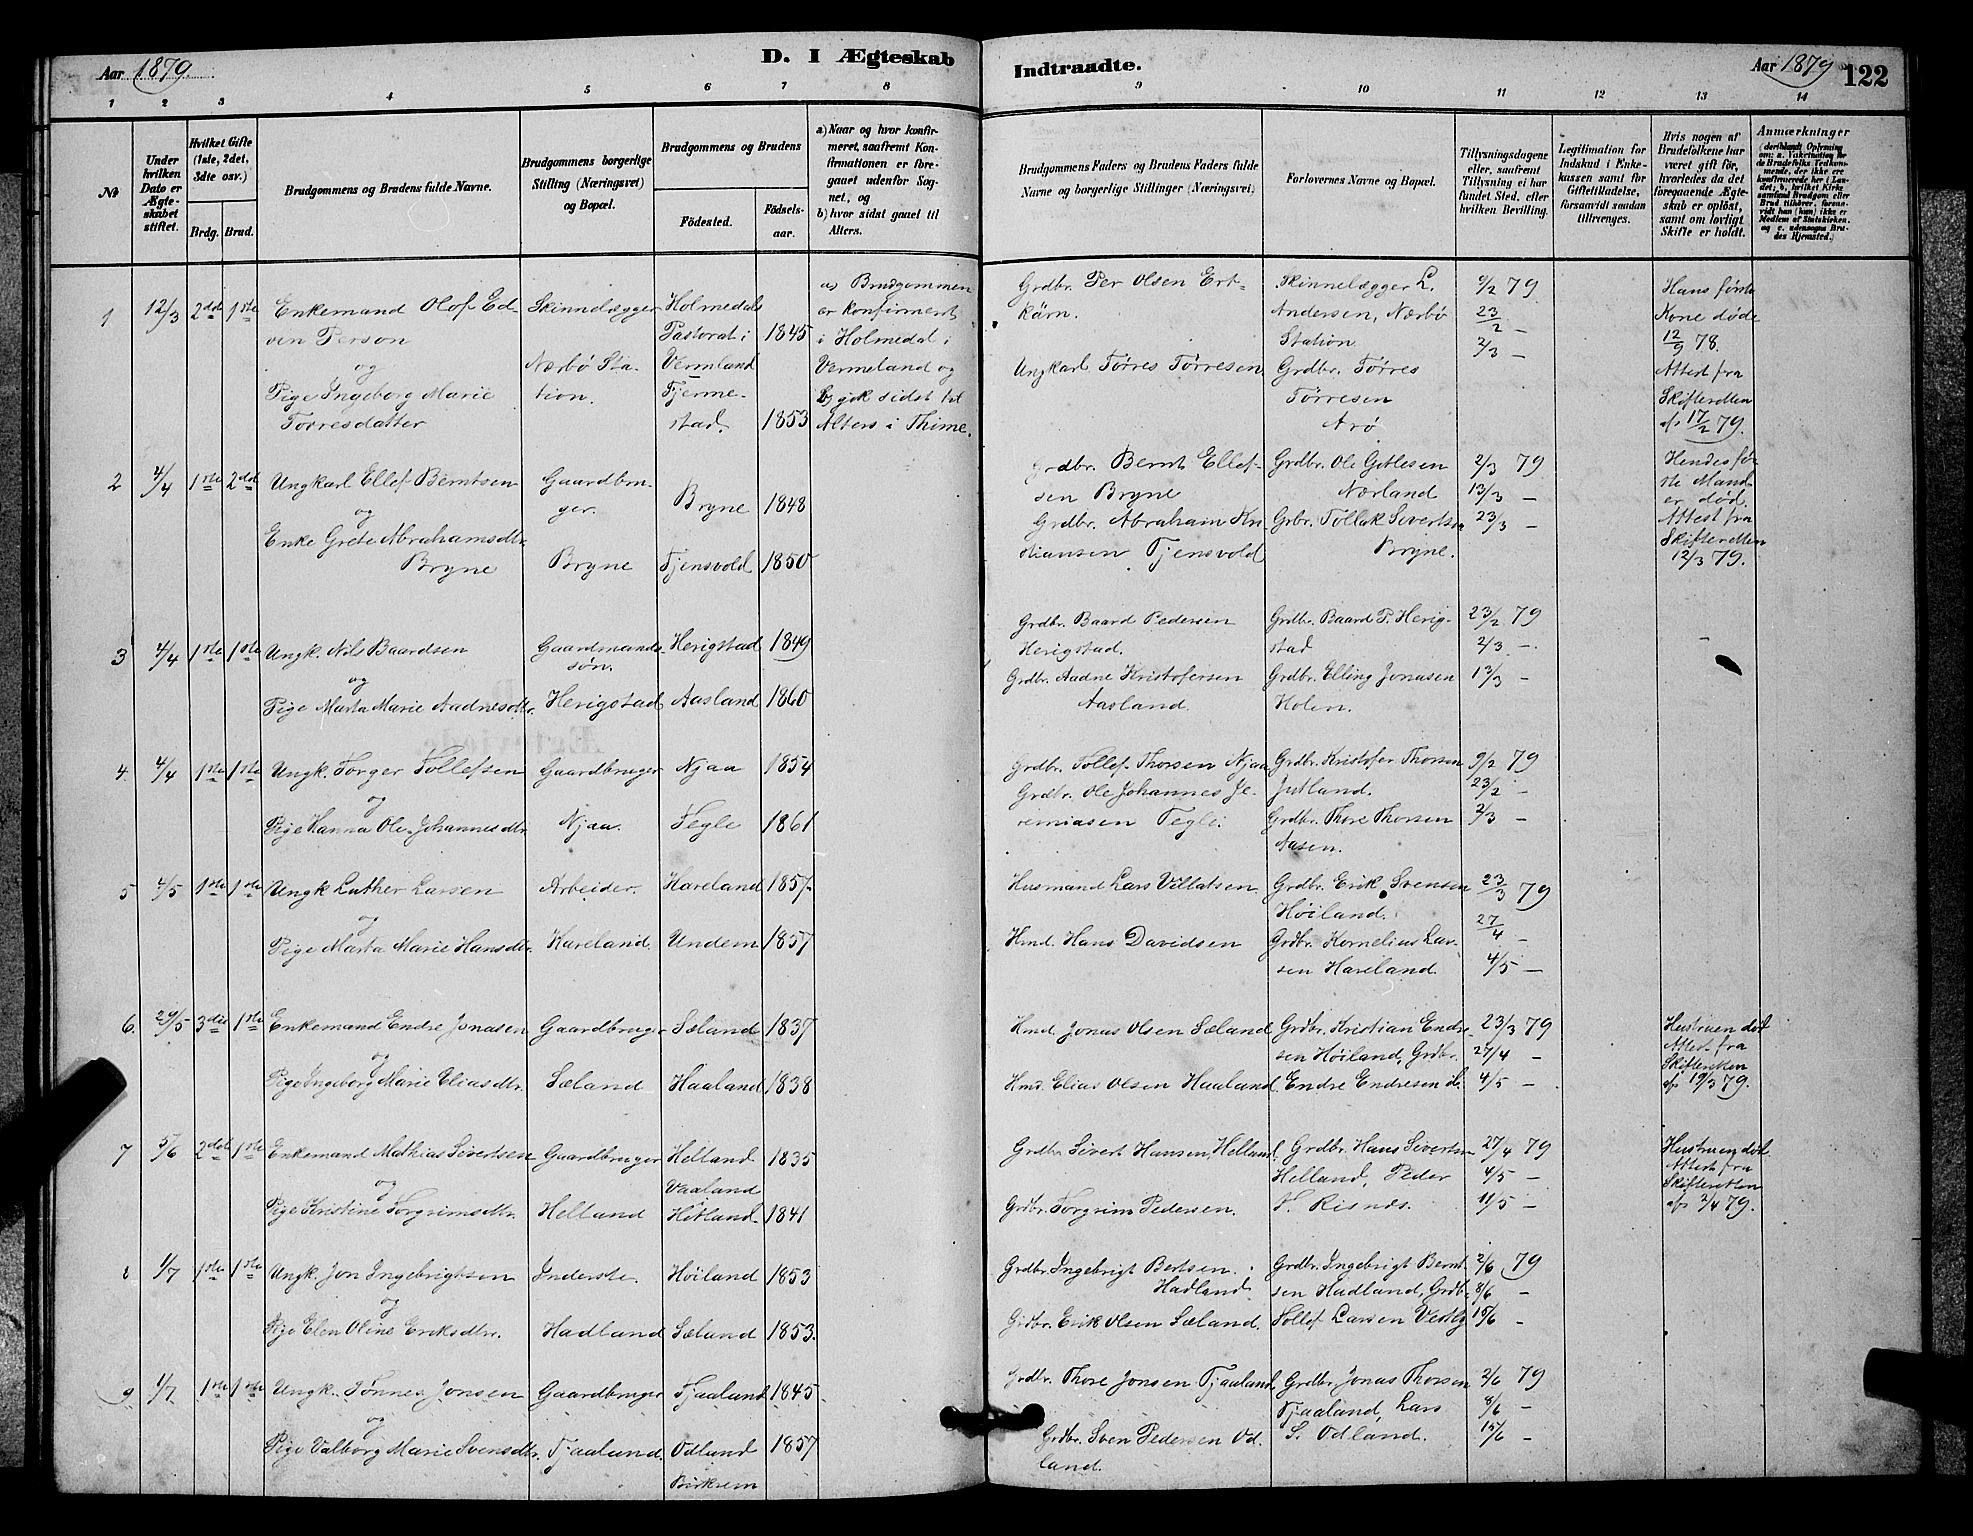 Aar 1879.
D. I Ægteskab
Indtraadte.
Aar 1879
122
1 2 3 4 5 6 7 8 9 10 11 12 13 14
№
Under hvilken Dato er Ægteskabet stiftet.
Hvilket Gifte (1ste, 2det, 3die osv.)
Brdg. Brud.
Brudgommens og Brudens fulde Navne.
Brudgommens borgerlige Stilling (Næringsvei) og Bopæl.
Brudgommens og Brudens
Fødested.
Fødselsaar.
a) Naar og hvor konfirmeret, saafremt Konfirmationen er foregaaet udenfor Sognet, og
b) hvor sidst gaaet til Alters.
Brudgommens Faders og Brudens Faders fulde Navne og borgerlige Stillinger (Næringsvei).
Forlovernes Navne og Bopæl.
Tillysningsdagene eller, saafremt Tillysning ei har fundet Sted, efter hvilken Bevilling.
Legitimation for Indskud i Enkekassen samt for Gifteltilladelse, forsaavidt saadan tiltrænges.
Hvis nogen af Brudefolkene har været gift før, hvorledes da det foregaaende Ægteskab er opløst, samt om lovligt Skifte er holdt.
Anmærkninger
1 12/3 2det 1ste
Enkemand Olof Ed-
ven Person
og
Pige Ingeborg Marie
Torresdatter
Skinnelægger
Nærbö Sta-
tion.
Holmedals
Pastorat i
Vermland 1845
Fjerme-
stad. 1853
a) Brudgommen
er konfirmert
i Holmedal i
Vermeland og
b) gik sidst til
Alters i Thime.
Grdbr. Per Olsen Ert-
kärn.
Ungkarl Törres Törresen
Skinnelægger L.
Andersen, Nærbö
Station
Grdbr. Törres
Törresen
Arö
9/2 79
23/2 —
2/3 —
Hans første
Kone døde
12/9 78.
Attest fra
Skifteretten
af 17/2 79.
2 4/4 1ste 2det
Ungkarl Ellef Berntsen
og
Enke Grete Abrahamsdtr.
Bryne
Gaardbru-
ger.
Bryne
Bryne 1848
Tjensvold 1850
Grdbr. Bernt Ellef-
sen Bryne
Grdbr. Abraham Kri-
stiansen Tjensvold
Grdbr. Ole Gitlesen
Nærland
Grbr. Tollak Sivertsen
Bryne.
2/3 79
13/3 —
23/3 —
Hendes før-
ste Mand
er død.
Attest fra
Skifteretten
12/3 79.
3 4/4 1ste 1ste
Ungk. Nils Baardsen
og
Pige Marta Marie Aadnesdtr.
Gaardmands-
søn.
Herigstad
Herigstad 1849
Aasland 1860
Grdbr. Baard Pedersen
Herigstad.
Grdbr. Aadne Kristofersen
Aasland.
Grdbr. Baard P. Herig-
stad
Grdbr. Elling Jonasen
Holen.
23/2 79
2/3 —
13/3 —
4 4/4 1ste 1ste
Ungk. Torger Tollefsen
og
Pige Hanna Ole-Johannesdtr.
Gaardbruger
Njaa.
Njaa 1854
Tegle 1861
Grdbr. Tollef Thorsen Njaa
Grdbr. Ole Johannes Je-
remiasen Tegle.
Grdbr. Kristofer Thorsen
Jutland.
Grdbr. Thore Thorsen
Aasen.
9/2 79
23/2 —
2/3 —
5 4/5 1ste 1ste
Ungk Luther Larsen
og
Pige Marta Marie Hansdtr.
Arbeider.
Hareland.
Hareland 1857
Undem 1857
Husmand Lars Villatsen
Hmd. Hans Davidsen
Grdbr. Erik Svensen
Høiland.
Grdbr. Kornelius Lar-
sen Hareland.
23/3 79
27/4 —
4/5 —
6. 29/5 3die 1ste
Enkemand Endre Jonasen
og
Pige Ingeborg Marie Eliasdtr.
Gaardbruger
Sæland
Sæland 1837
Haaland 1838
Hmd. Jonas Olsen Sæland
Hmd. Elias Olsen Haaland
Grdbr. Kristian Endre-
sen Høiland, Grdbr.
Endre Endresen ib.
23/3 79
27/4 —
4/5 —
Hustruen död
Attest fra
Skifteretten
af 19/3 79.
7 5/6 2det 1ste
Enkemand Mathias Sivertsen
og
Pige Kristine Torgrimsdtr.
Gaardbruger
Helland
Helland 1835
Vaaland
Hetland 1841
Grdbr Sivert Hansen, Helland
Grdbr. Torgrim Pedersen.
Grdbr. Hans Sivertsen
Helland, Peder
T. Risnes.
27/4 79
4/5 —
11/5 —
Hustruen död
Attest fra
Skifteretten
af 2/4 79.
8 1/7 1ste 1ste
Ungk. Jon Ingebrigtsen
og
Pige Elen Oline Eriksdtr.
Inderste
Hadland
Høiland 1853
Sæland 1853.
Grdbr. Ingebrigt Bertsen
Hadland
Grdbr. Erik Olsen Sæland.
Grdbr. Ingebrigt Bernt-
sen Hadland, Grdb.
Tollef Larsen Vestly
2/6 79
8/6 —
15/6 —
9 1/7 1ste 1ste
Ungk. Tönnes Jonsen
og
Pige Valborg Marie Svensdtr.
Gaardbruger
Tjaaland.
Tjaaland 1845
Odland 1857
Birkrem
Grdbr. Thore Jonsen Tjaaland
Grdbr. Sven Pedersen Od-
land.
Grdbr. Jonas Thorsen
Tjaaland, Lars
S. Odland.
2/6 79
8/6 —
15/6 —